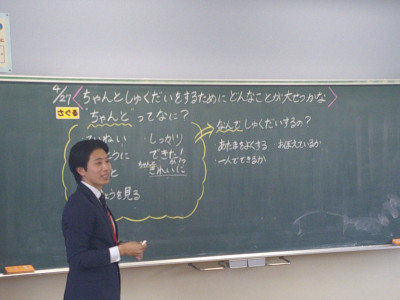 4/27 ちゃんとしゅくだいをするためにどんなことが大せつかな
さぐる
"ちゃんと"ってなに?
ていねい
・しっかり
できた!
ちゃんと
きれいに
を見る
なんでしゅくだいするの?
・あたまをよくする ・おぼえているか
・一人でできるか